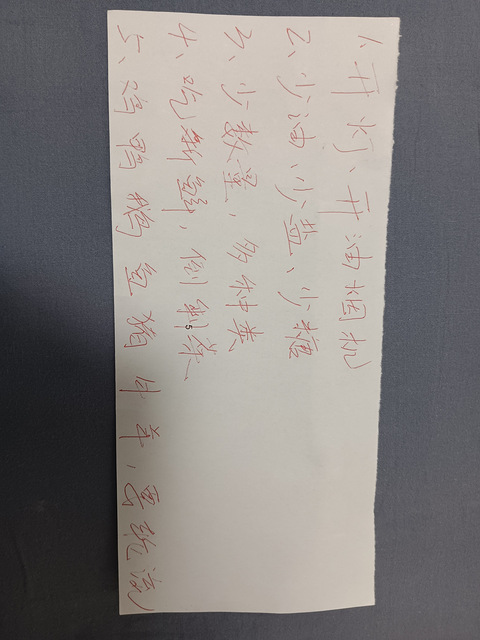 1、开灯、开油烟机
2、少油、少盐、少糖
3、少数量，多种类
4、吃新鲜，倒剩菜、
5
5、鸡鸭鹅鱼猪牛羊，要轮流